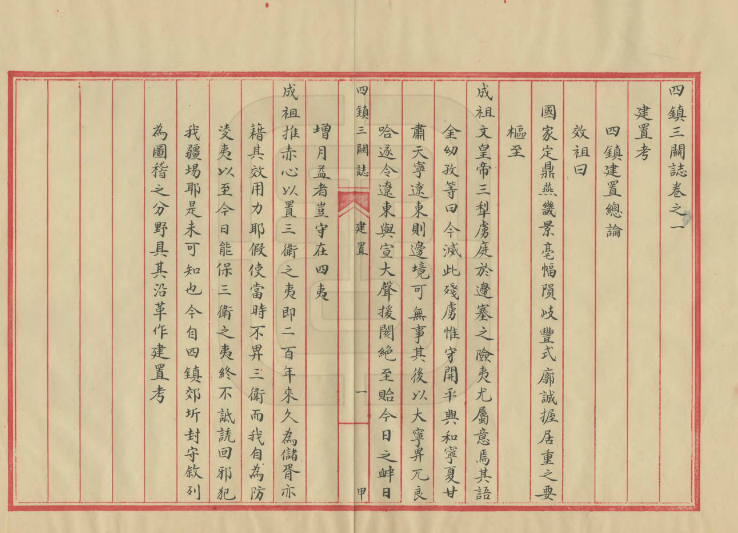 四鎮三關誌卷之一
建置考
四鎮建置總論
效祖曰
國家定鼎燕畿景亳幅隕岐豐式廓誠握居重之要
樞至
成祖文皇帝三犁虜庭於邊塞之險夷尤屬意焉其語
金幼孜等曰今滅此殘虜惟守開平興和寧夏甘
肅天寧遼東則邊境可無事其後以大寧畀兀良
哈遂令遼東與宣大聲援闊絶至貽今日之衅日
四鎮三關誌
建置
一
甲
增月益者豈守在四夷
成祖推赤心以置三衛之夷即二百年來久為儲胥亦
藉其效用力耶假使當時不畀三衛而我自為防
淩夷以至今日能保三衛之夷終不詆諕回邪犯
我疆埸耶是未可知也今自四鎮郊圻封守敘列
為圖稽之分野具其沿革作建置考